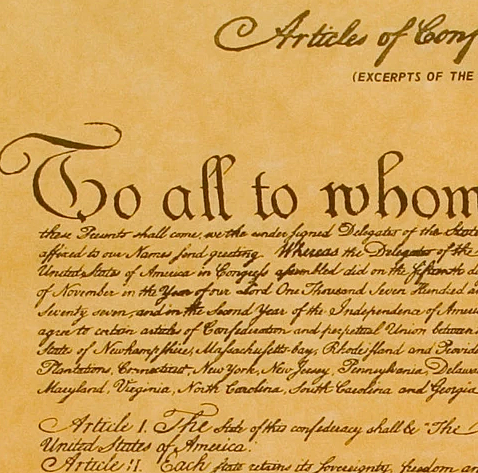 Articles of Conf
(EXCERPTS OF THE
To all to whom
these Presents shall come, we the under signed Delegates of the State
affixed to our Names send greeting. Whereas the Delegates of the
United States of America in Congress assembled did on the fifteenth d
of November in the Year of our Lord One Thousand Seven Hundred a
Seventy seven, and in the Second Year of the Independence of Ameri
agree to certain articles of Confederation and perpetual Union between
States of Newhampshire, Massachusetts-bay, Rhodeisland and Provid
Plantations, Connecticut, New York, New Jersey, Pennsylvania, Delaw
Maryland, Virginia, North Carolina, South Carolina and Georgia
Article I. The State of this confederacy shall be "The
United States of America.
Article II. Each state retains its Sovereignty, freedom an